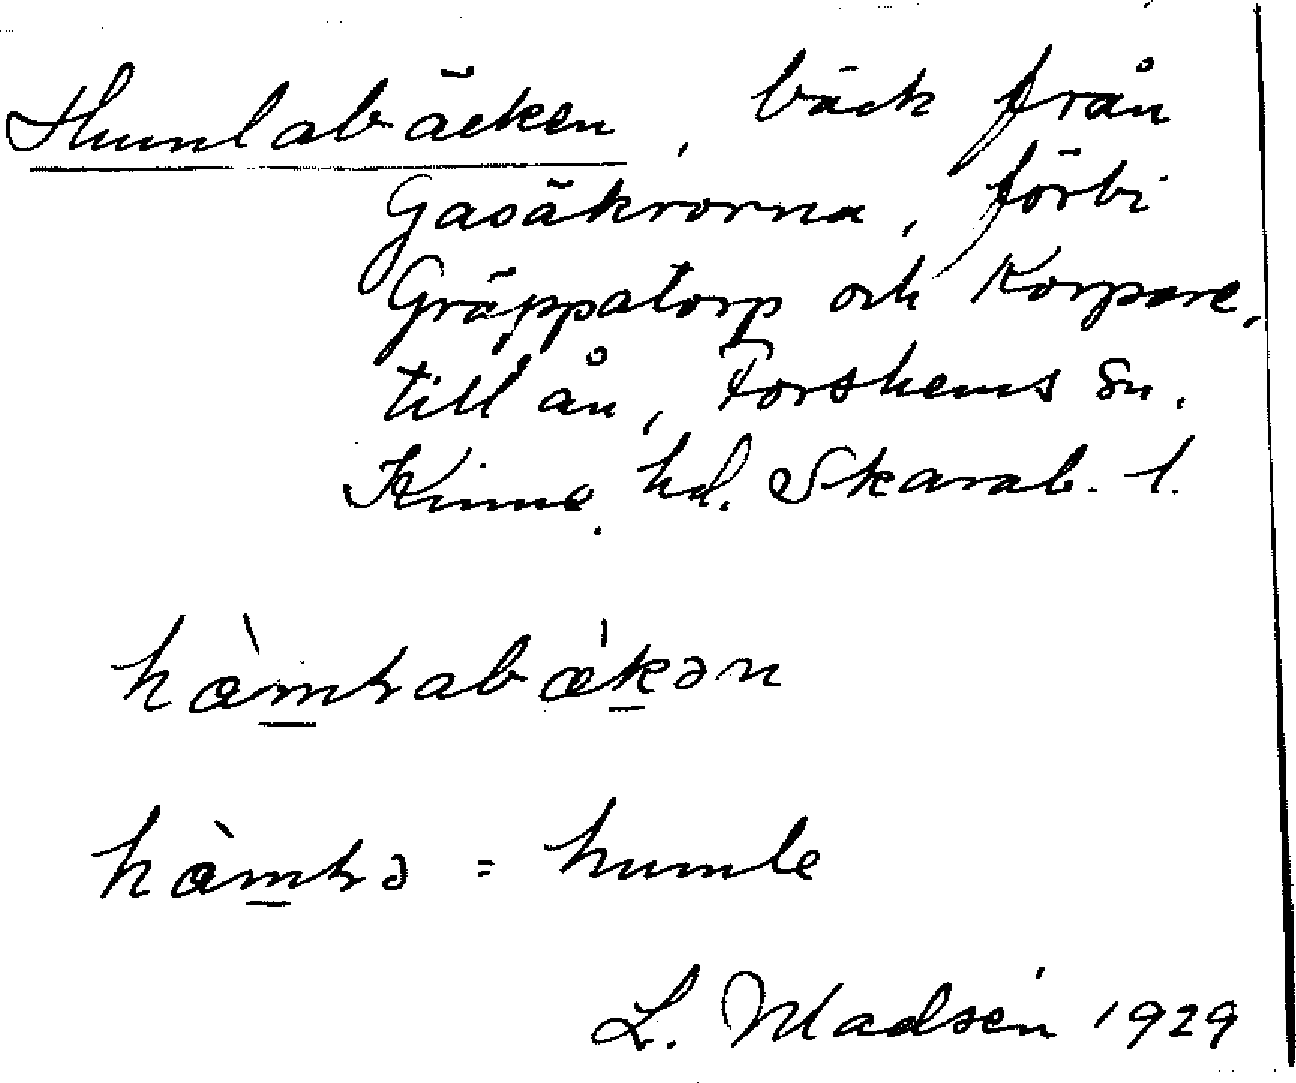 Humlabäcken, bäck från
Gasäkrorna, förbi
Gräppatorp och Korpare,
till ån, Forshems sn.
Kinne hd. Skarab. l.
hæ̀m̱ɽabǽḵən
hæ̀m̱ɽə = humle
L. Madsén 1929